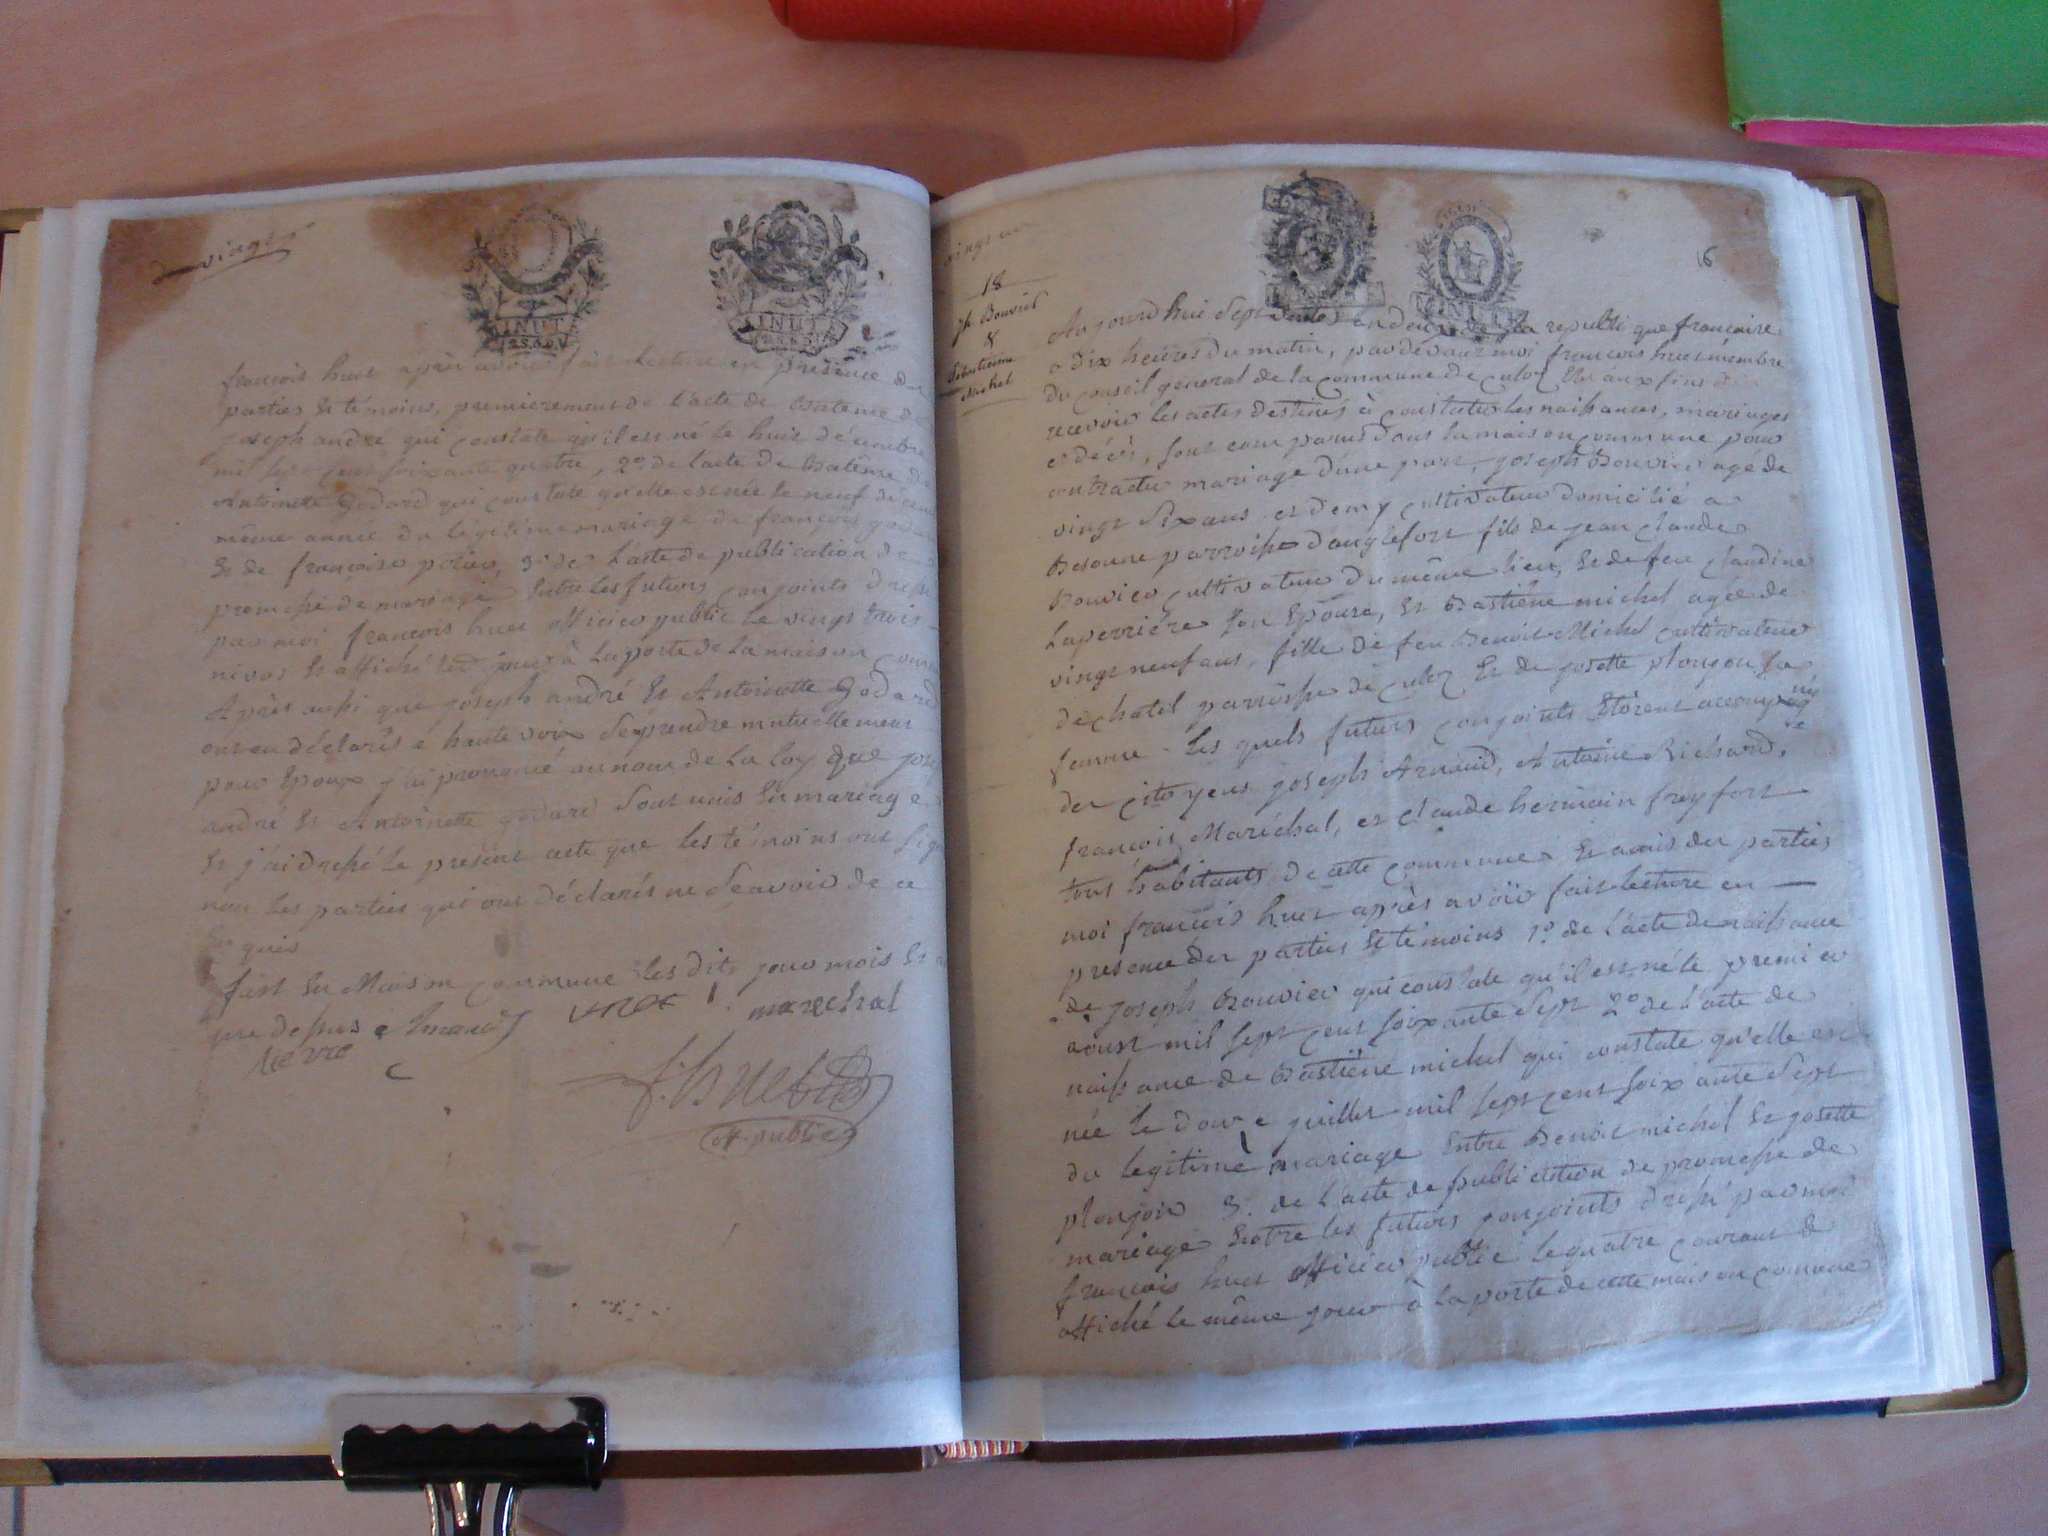 vingt
MINUT
françois huet après avoir fait lecture en presence des
parties et témoins, premierement de l'acte de batême de
joseph andré qui constate qu'il est né le huit décembre
mil sept cent soixante quatre, 2° de l'acte de Batême de
Antoinette godard qui constate qu'elle est née le neuf décem
même année du légitime mariage de françois god
et de françoise, 3° de l'acte de publication de
promesse de mariage entre les futurs conjoints dressé
par moi françois huet officier public le vingt trois
nivos et affiché led. jour à la porte de la maison comm
Après aussi que joseph andré et Antoinette godard
ont eu déclarés à haute voix se prendre mutuellement
pour époux j'ai prononcé au nom de la loy que jose
andré et Antoinette godard sont unis en mariage
et j'ai dressé le present acte que les témoins ont sign
non les parties qui ont déclarés ne sçavoir de ce
enquis
fait en Maison commune les dits jour mois et
que dessus
marechal
f. huet
off. public
18
jh. Bouvier
&
Bastienne
Michel
16
Aujourd'hui sept an deux de la republique françaire
a dix heures du matin, par devant moi françois huet membre
du conseil general de la commune de culoz élu aux fins de
recevoir les actes destinés à constater les naissances, mariages
et décès, sont comparus dans la maison commune pour
contracter mariage d'une part, joseph Bouvier agé de
vingt six ans et demy cultivateur domicilié a
Besonne parroisse d'anglefort fils de jean claude
Bouvier cultivateur du même lieu, et de feu claudine
Laperriére son épouse, et Bastiéne michel agée de
vingt neuf ans, fille de feu Benoit Michel cultivateur
de chatel parroisse de culoz et de josette plonjon sa
femme. Les quels futurs conjoints étoient accompagnés
des citoyens joseph Arnaud, Antoine Richard,
françois Maréchal, et claude hermain freyfort
tous habitants de cette commune et amis des parties
moi françois huet après avoir fait lecture en
presence des parties et témoins 1° de l'acte de naissance
de joseph Bouvier qui constate qu'il est né le premier
aoust mil sept cent soixante sept 2° de l'acte de
naissance de Bastiéne michel qui constate qu'elle est
née le douze juillet mil sept cent soixante sept
du legitime mariage entre Benoit michel et josette
plonjon 3. de l'acte de publication de promesse de
mariage entre les futurs conjoints dressé par moi
françois huet officier public le quatre courant &
affiché le même jour à la porte de cette maison comune